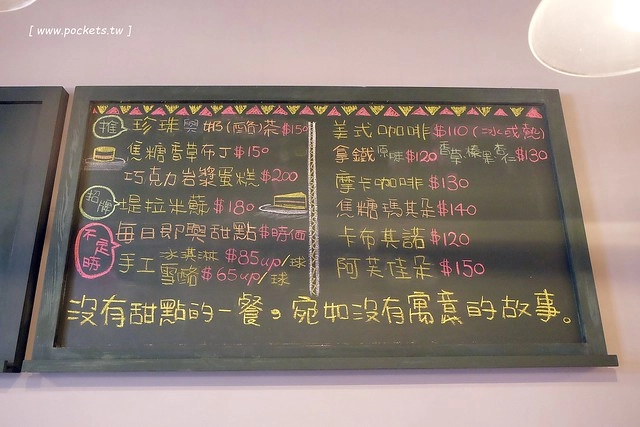 [ www.pockets.tw ]
推 珍珠與奶(酪)茶$150
焦糖香草布丁$150
巧克力岩漿蛋糕$200
招牌 提拉米蘇 $180
不定時 每日即興甜點$時價
手工 冰淇淋 $85up/球
雪酪$65up/球
美式咖啡$110(冰或熱)
拿鐵 原味$120 香草、榛果、杏仁$130
摩卡咖啡$130
焦糖瑪其朵$140
卡布其諾$120
阿芙佳朵$150
沒有甜點的一餐。宛如沒有寓意的故事。